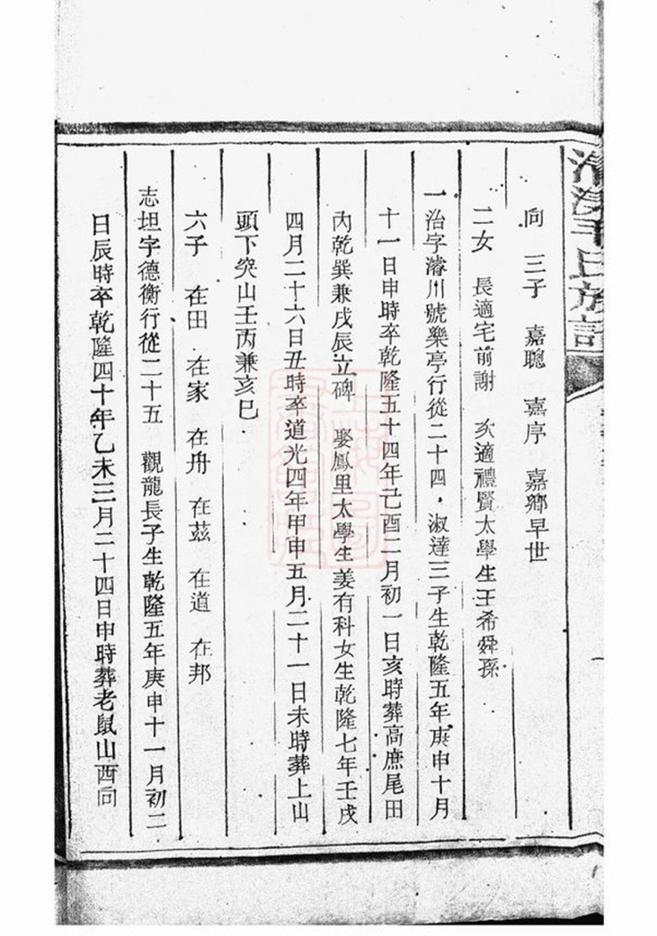 毛氏族譜
向　三子　嘉聰　嘉序　嘉鄉早世
二女　長適宅前謝　次適禮賢太學生王希舜孫
一治字濬川號樂亭行從二十四，淑達三子生乾隆五年庚申十月
十一日申時卒乾隆五十四年己酉二月初一日亥時葬高庶尾田
內乾巽兼戌辰立碑　娶鳳里太學生姜有科女生乾隆七年壬戌
四月二十六日丑時卒道光四年甲申五月二十一日未時葬上山
頭下突山壬丙兼亥巳
六子　在田　在家　在舟　在茲　在道　在邦
志坦字德衡行從二十五　觀龍長子生乾隆五年庚申十一月初二
日辰時卒乾隆四十年乙未三月二十四日申時葬老鼠山西向